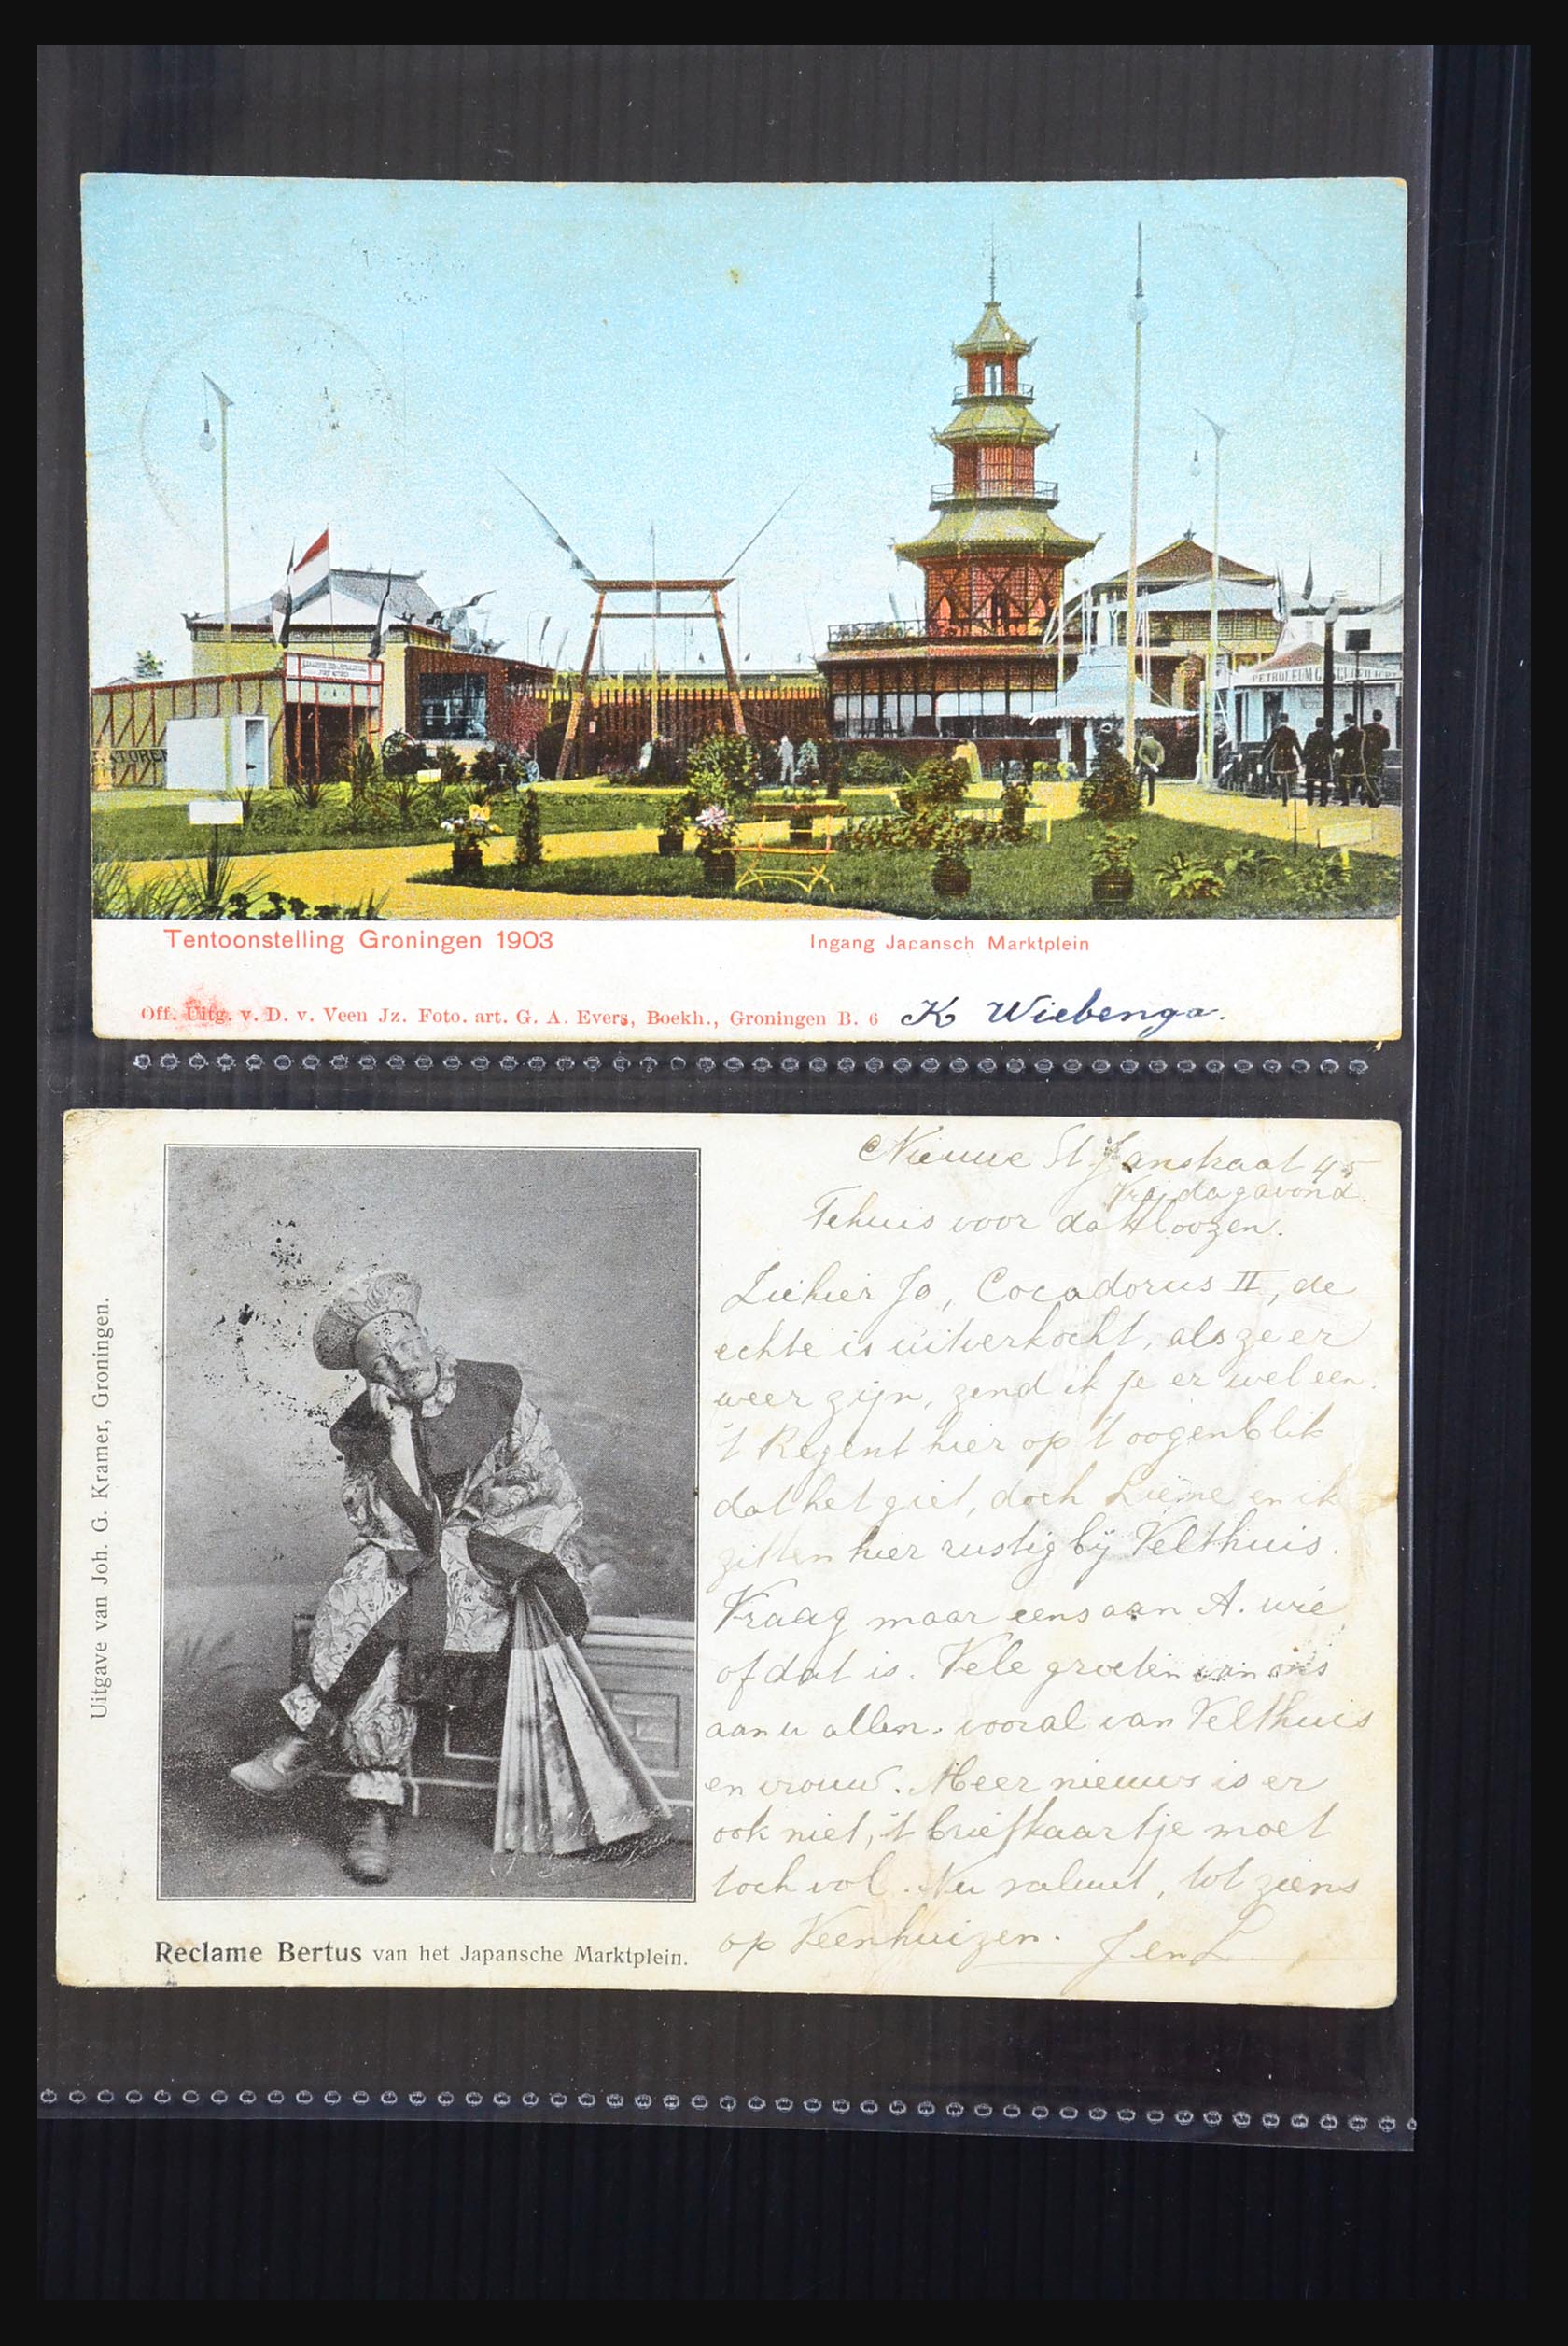 Tentoonstelling Groningen 1903
Ingang Japansch Marktplein
Off. Uitg. v. D. v. Veen Jz. Foto. art. G. A. Evers, Boekh., Groningen B. 6
K Wiebenga.
Uitgave van Joh. G. Kramer, Groningen.
Reclame Bertus van het Japansche Marktplein.
Nieuwe St Janstraat 45
Vrijdagavond.
Tehuis voor dakloozen.
Ziehier Jo, Cocadorus II, de
echte is uitverkocht, als ze er
weer zijn, zend ik je er wel een.
't Regent hier op 't oogenblik
dat het giet, doch Liene en ik
zitten hier rustig bij Velthuis.
Vraag maar eens aan A. wie
of dat is. Vele groeten van ons
aan u allen. vooral van Velthuis
en vrouw. Meer nieuws is er
ook niet, 't briefkaartje moet
toch vol. Nu saluut, tot ziens
op Veenhuizen. J en L